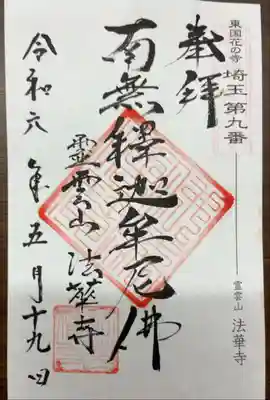 東国花の寺
埼玉第九番
霊雲山 法華寺
奉拝
南無釋迦牟尼佛
靈雲山 法華寺
令和六年五月十九日